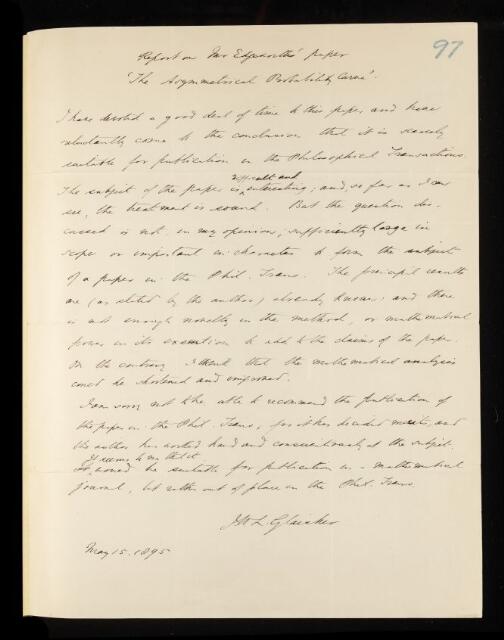 97
Report on Mr Edgeworth's paper
'The Asymmetrical Probability Curve'.
I have devoted a good deal of time to this paper and have
reluctantly come to the conclusion that it is scarcely
suitable for publication in the Philosophical Transactions.
difficult and
The subject of the paper is interesting; and, so far as I can
see, the treatment is sound. But the question dis-
cussed is not, in my opinion, sufficiently large in
scope or important in character to form the subject
of a paper in the Phil. Trans. The principal results
are (as stated by the author) already known: and there
is not enough novelty in the method, or mathematical
power in its execution to add to the claims of the paper.
On the contrary I think that the mathematical analysis
could be shortened and improved.
I am sorry not to be able to recommend the publication of
the paper in the Phil. Trans., for it has decided merits, and
the author has worked hard and conscientiously at the subject.
It seems to me that it
would be suitable for publication in a mathematical
journal, but rather out of place in the Phil. Trans.
J.W.L. Glaisher
May 15. 1895